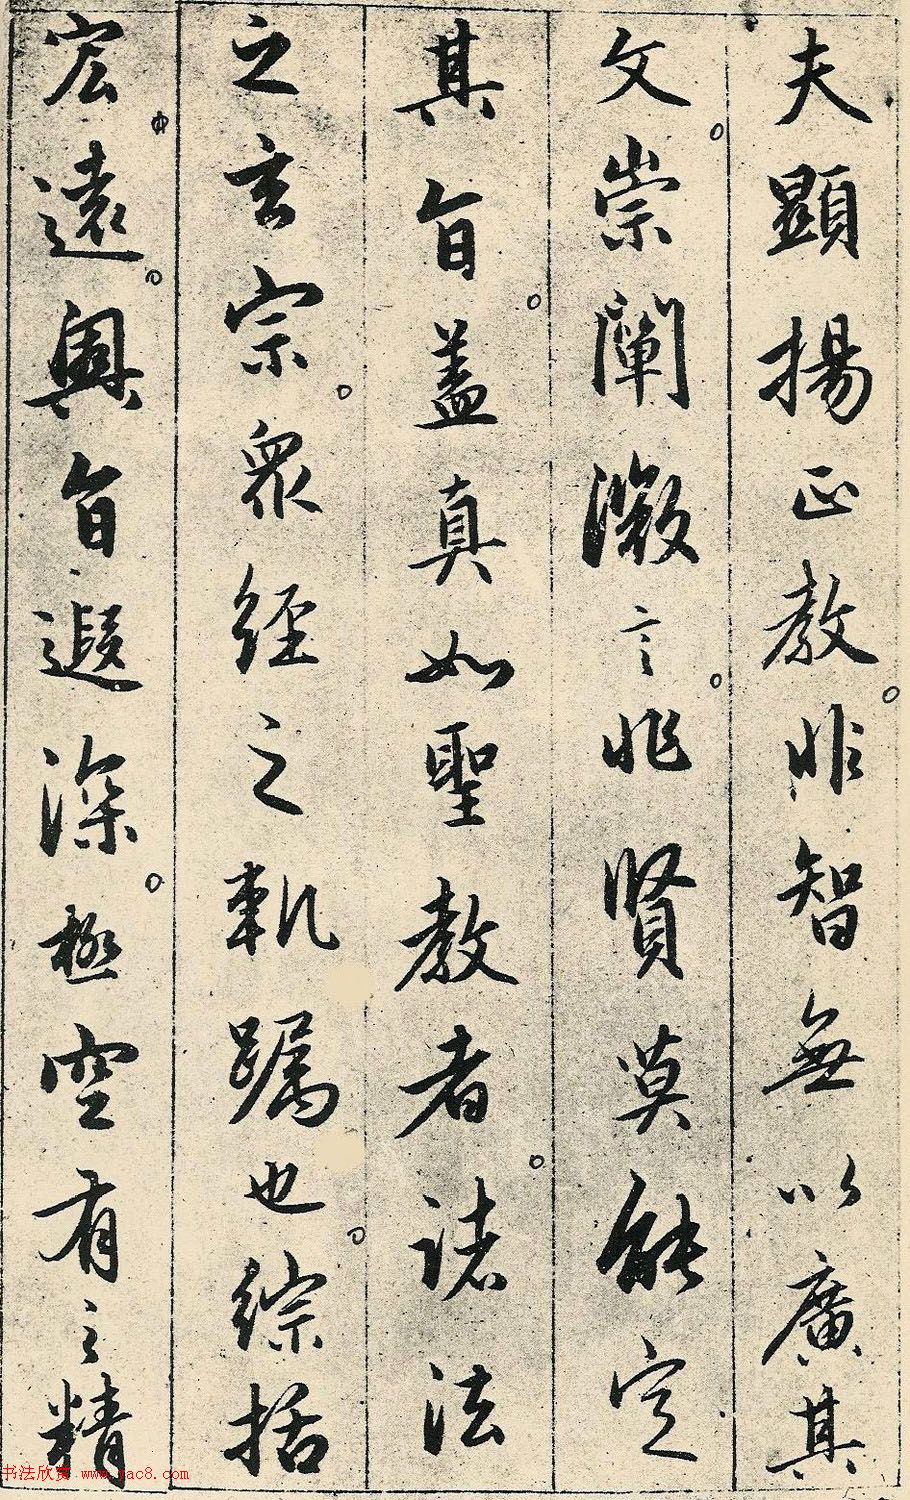 夫顯揚正教非智無以廣其
文崇闡微言非賢莫能定
其旨蓋真如聖教者諸法
之玄宗眾經之軌躅也綜括
宏遠奧旨遐深極空有之精
书法欣赏 www.yac8.com